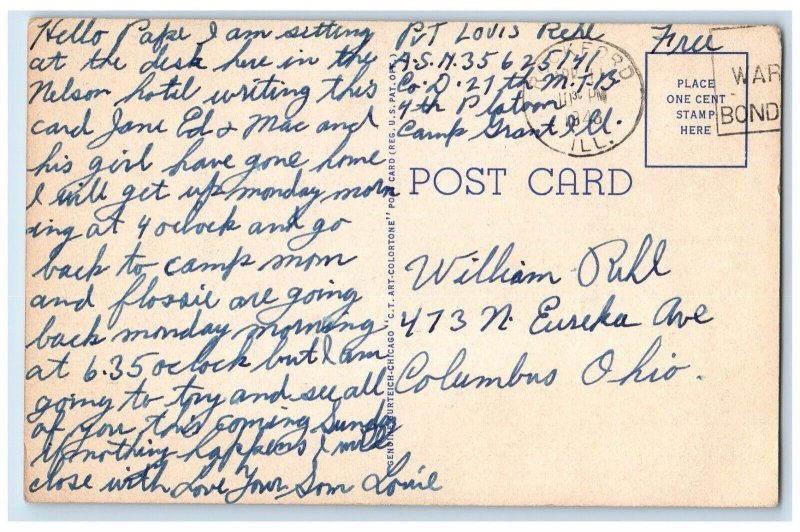 Hello Pape I am setting
at the desk here in the
Nelson hotel writing this
card Jane Ed & Mac and
his girl have gone home
I will get up monday morn
ing at 4 oclock and go
back to camp mom
and flossie are going
back monday morning
at 6.35 oclock but I am
going to try and see all
of you this coming Sunday
if nothing happens I will
close with Love Your Son Louie
Pvt Louis Rehl
A.S.N. 35625141
Co. D. 27th M.T.B
4th Platoon
Camp Grant Ill.
Free
ROCKFORD
PM
ILL.
PLACE
ONE CENT
STAMP
HERE
WAR
BOND
POST CARD
GENUINE CURTEICH-CHICAGO "C.T. ART-COLORTONE" POST CARD (REG. U.S. PAT. OFF.)
William Rehl
473 N. Eureka Ave
Columbus Ohio.